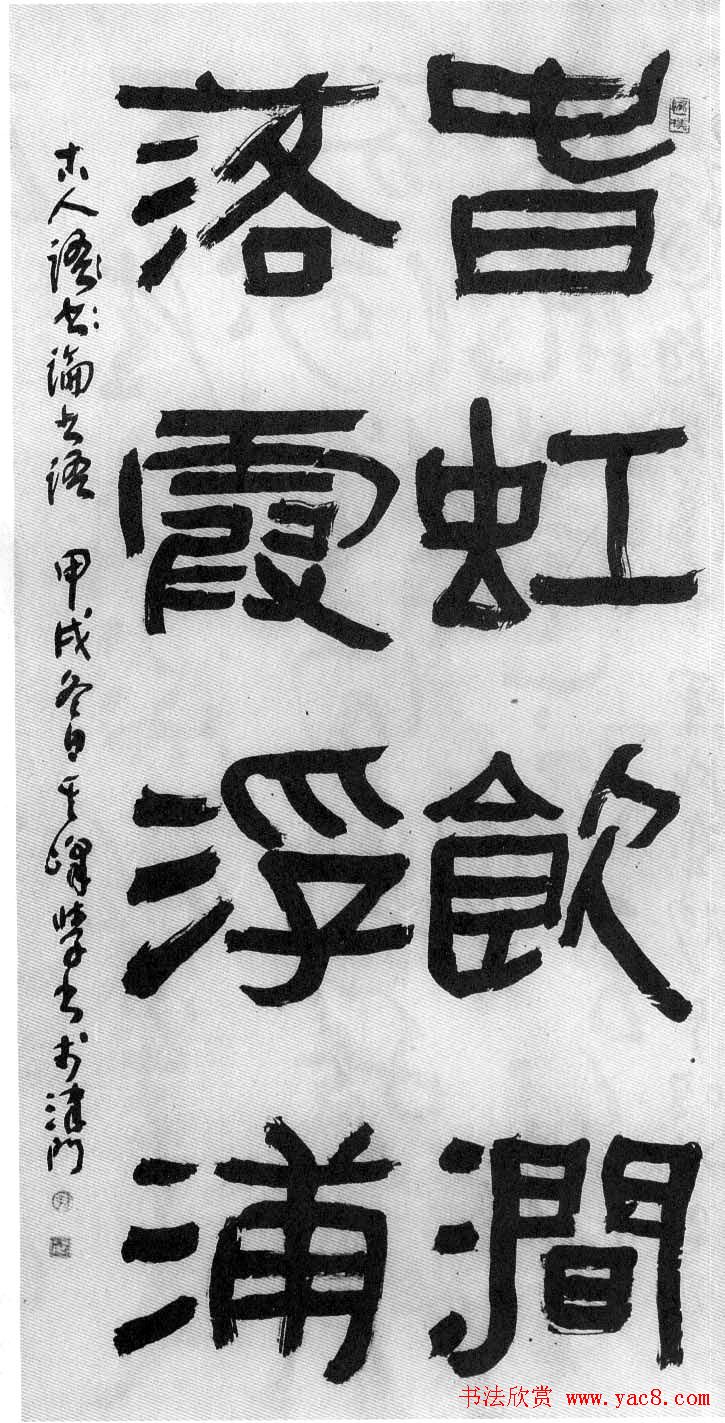 旾虹飲澗
落霞浮浦
人書論書語 甲戌冬日書於津門
书法欣赏 www.yac8.com